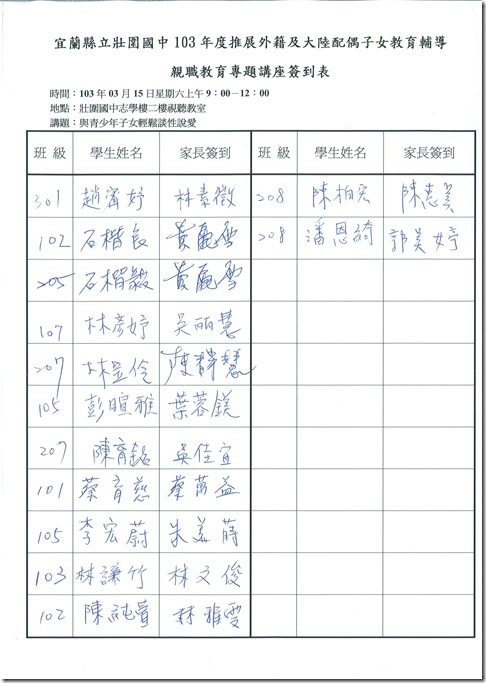 宜蘭縣立壯圍國中103年度推展外籍及大陸配偶子女教育輔導
親職教育專題講座簽到表
時間：103年03月15日星期六上午9：00－12：00
地點：壯圍國中志學樓二樓視聽教室
講題：與青少年子女輕鬆談性說愛
班 級 學生姓名 家長簽到 班 級 學生姓名 家長簽到
301 趙甯妤 林素徵 208 陳柏宏 陳惠美
102 石楷良 黃麗雪 208 潘恩綺 郭美婷
205 石楷毅 黃麗雪
107 林彥妤 吳丽慧
207 林昱伶 陳靜慧
105 彭暄雅 葉蓉鎂
207 陳育銘 吳佳宜
101 蔡育慈 蔡萬益
105 李宏蔚 朱美蒔
103 林謙竹 林文俊
102 陳純萱 林雅雯